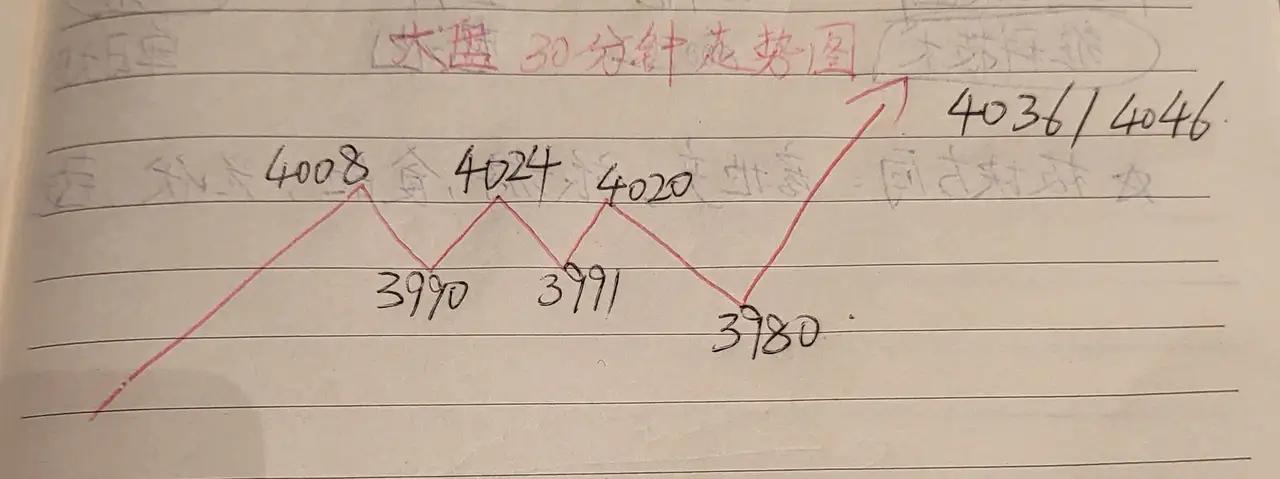 大盘 30分钟走势图
4036/4046
4008 4024 4020
3990 3991
3980